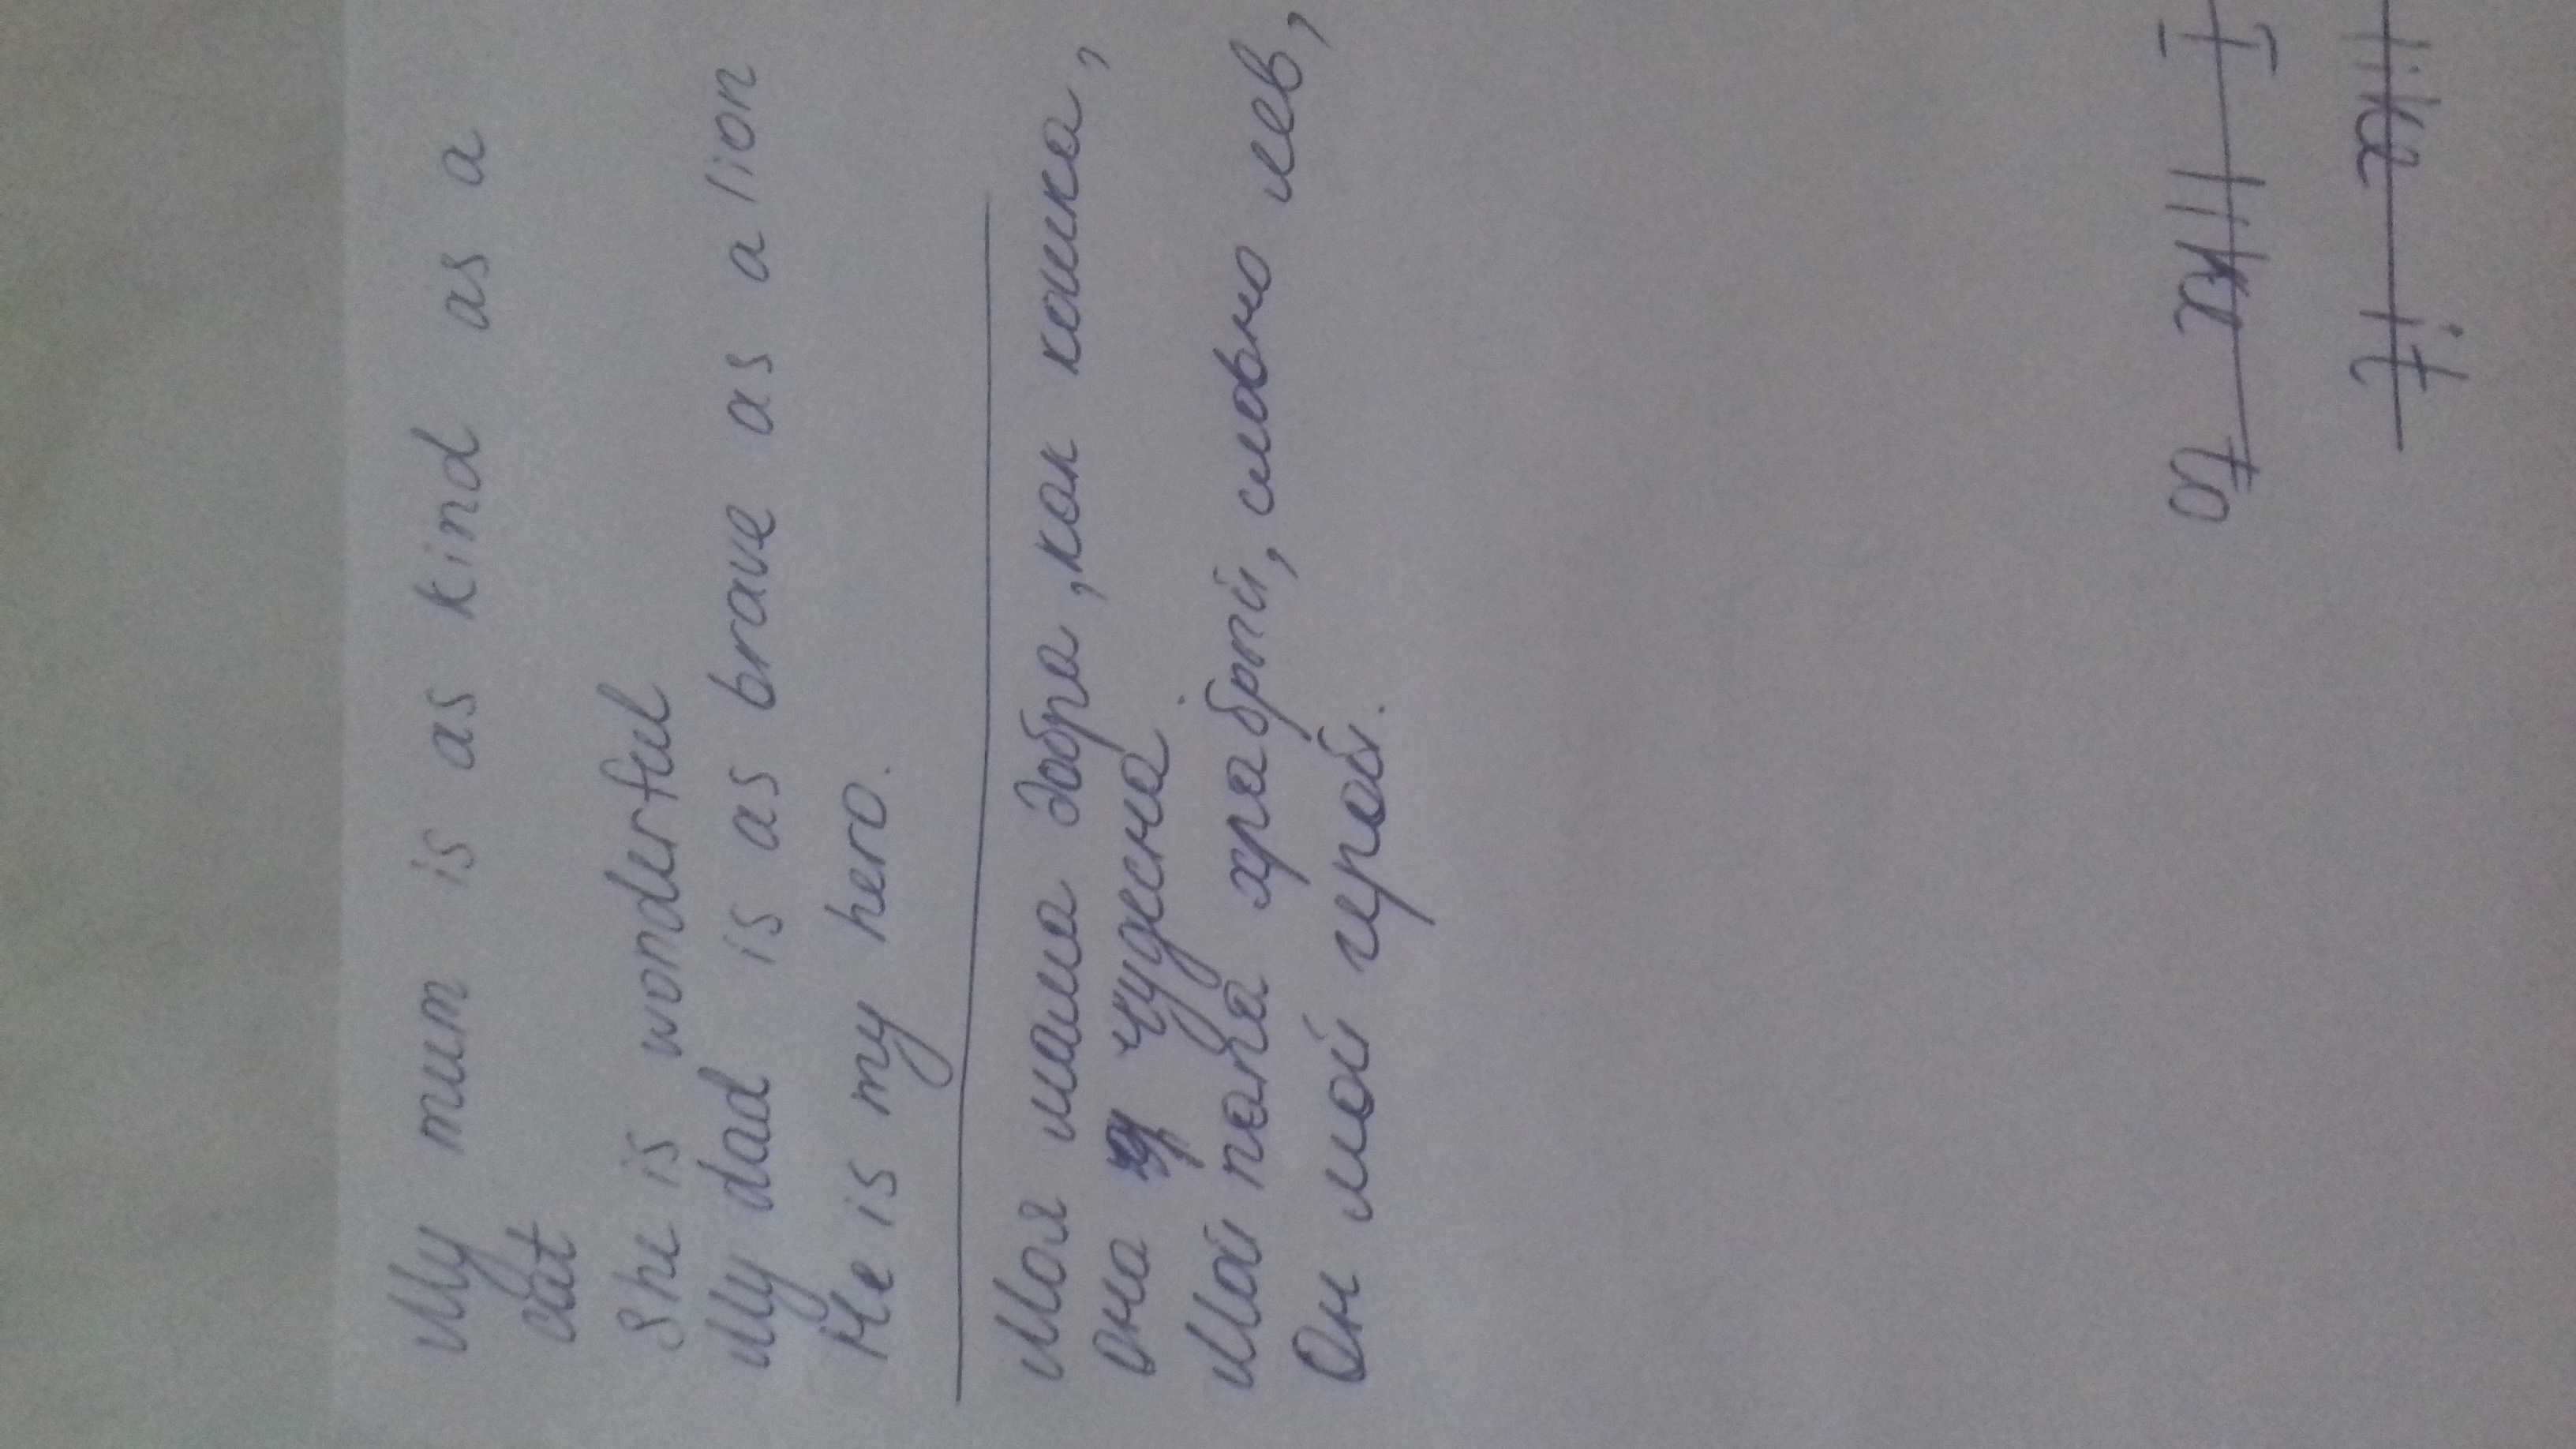 My mum is as kind as a
cat
She is wonderful
My dad is as brave as a lion
He is my hero.
Моя мама добра, как кошка,
она чудесна.
Мой папа храбрый, словно лев,
Он мой герой.